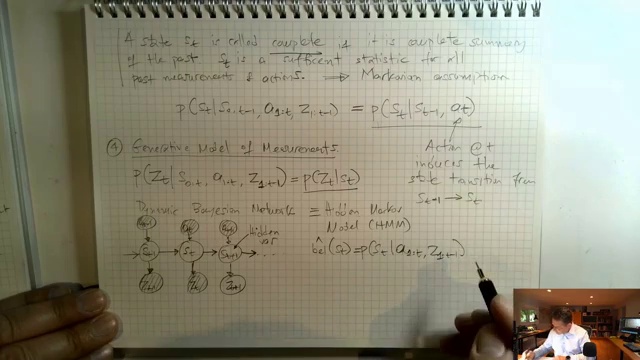 A state St is called complete if it is complete summary
of the past St is a sufficient statistic for all
past measurements & actions. ⟹ Markovian assumption
p(St|S0:t-1, a1:t, Z1:t-1) = p(St|St-1, at)
Action @ t
induces the
state transition from
St-1 → St
④ Generative Model of Measurements
p(Zt|S0:t, a1:t, Z1:t-1) = p(Zt|St)
Dynamic Bayesian Network ≡ Hidden Markov
Model (HMM)
Hidden
var
St-1 St St+1 ...
Zt-1 Zt Zt+1
bel(St) = p(St|a1:t, Z1:t-1)